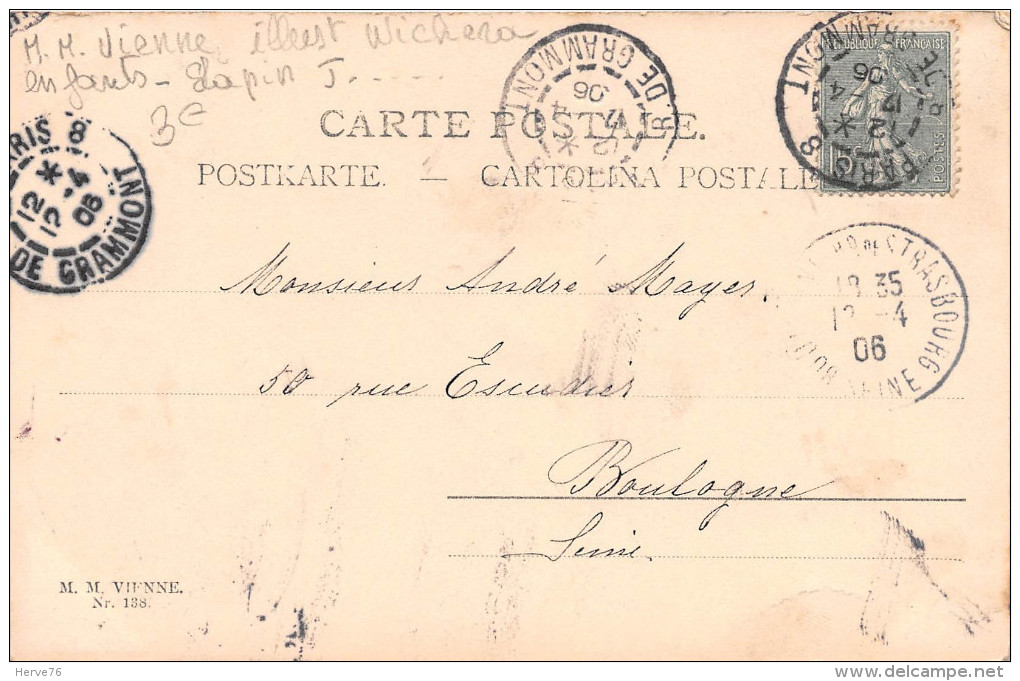 M. M. Vienne, illust Wichera
enfants - Lapin J......
3€
CARTE POSTALE.
POSTKARTE. — CARTOLINA POSTALE
REPUBLIQUE FRANÇAISE
15c
POSTES
PARIS 8
R. DE GRAMMONT
12 * 12 - 4
06
R. DE GRAMMONT
12 * 12 4
06
PARIS 8
12 * 12 - 4
06
DE GRAMMONT
STRASBOURG
18 35
12 - 4
06
BOUL
SEINE
Monsieur André Mayer.
50 rue Escudier
Boulogne
Seine
M. M. VIENNE.
Nr. 138.
Herve76
delcampe.net